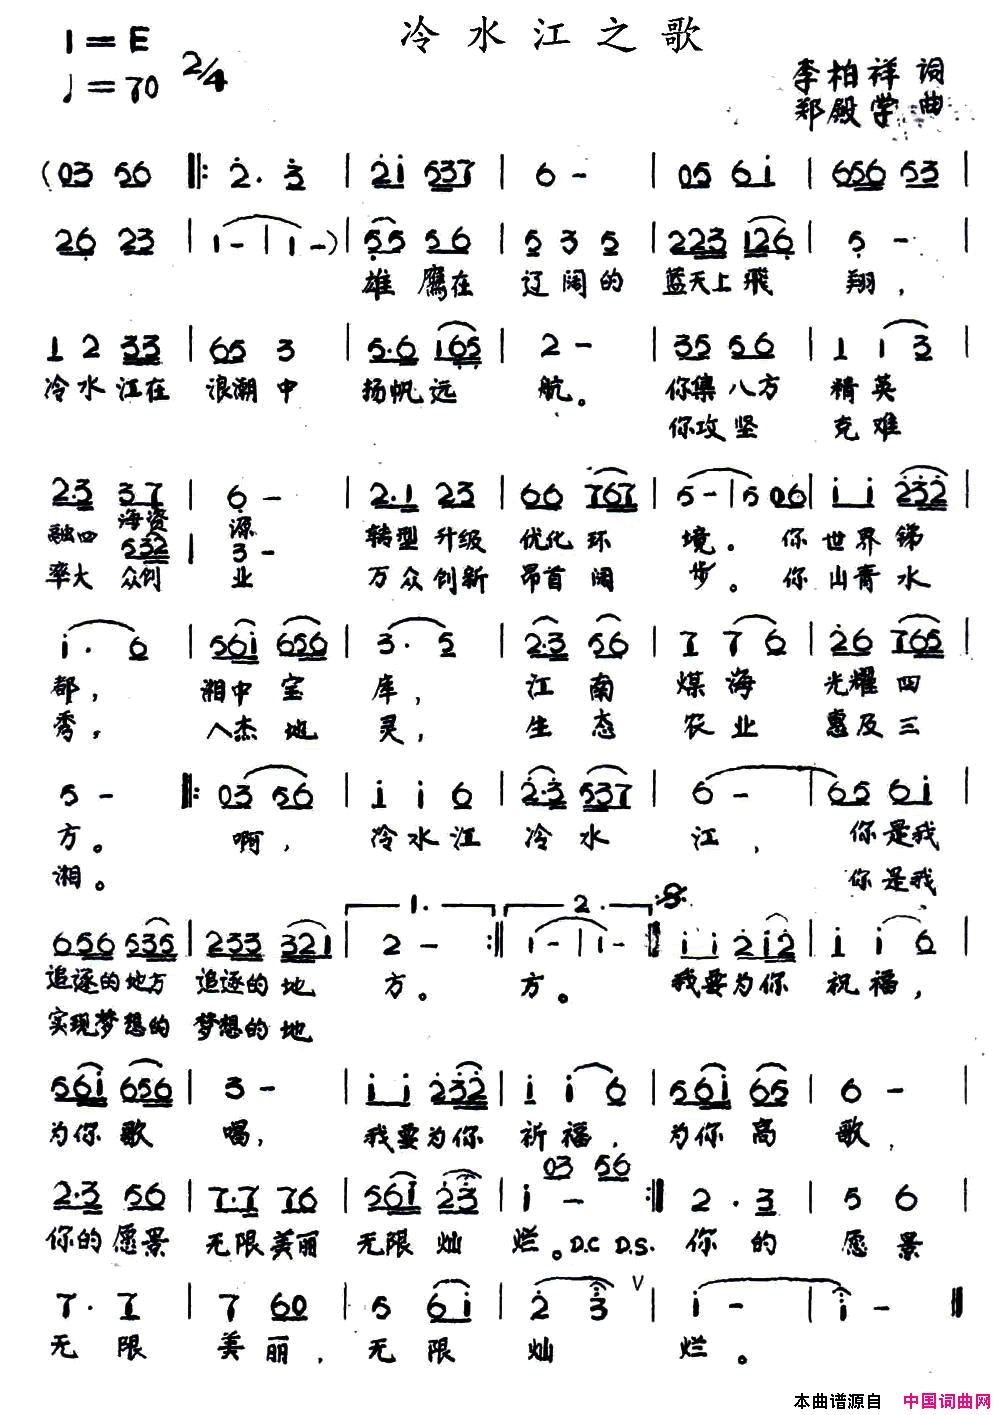 冷水江之歌
1=E 2/4
♩=70
李柏祥 词
郑殿学 曲
(03 56 ‖: 2. 3 | 21 537 | 6 - | 05 61 | 656 53 |
26 23 | 1 - | 1 - ) | 55 56 | 5 3 5 | 223 126 | 5 - |
雄鹰在 辽阔的 蓝天上飛 翔，
1 2 33 | 65 3 | 5.6 165 | 2 - | 35 56 | 1 1 3 |
冷水江在 浪潮中 扬帆远 航。 你集八方 精英
你攻坚 克难
2.3 37 | 6 - | 2.1 23 | 66 767 | 5 - | 5 06 | 1 1 232 |
融四海资 源 转型升级 优化环 境。你世界锑
532 | 3 - |
率大众创 业 万众创新 昂首阔 步。你山青水
1. 6 | 561 656 | 3. 5 | 2.3 56 | 7 7 6 | 26 765 |
都， 湘中宝 库， 江南 煤海 光耀四
秀， 人杰地 灵， 生态 农业 惠及三
5 - ‖: 03 56 | 1 1 6 | 2.3 537 | 6 - | 65 61 |
方。 啊， 冷水江 冷水 江， 你是我
湘。 你是我
1. 2.
656 535 | 233 321 | 2 - :‖ 1 - | 1 - ‖ 11 212 | 1 1 6 |
追逐的地方 追逐的地 方。 方。 我要为你 祝福，
实现梦想的 梦想的地
561 656 | 3 - | 11 232 | 1 1 6 | 561 65 | 6 - |
为你歌 唱， 我要为你 祈福， 为你高 歌，
03 56
2.3 56 | 7.7 76 | 561 23 | 1 - :‖ 2. 3 | 5 6 |
你的愿景 无限美丽 无限灿 烂。D.C D.S. 你的 愿景
7. 7 | 7 60 | 5 61 | 2 3 ∨ | 1 - | 1 - ‖
无限 美丽， 无限 灿 烂。
本曲谱源自 中国词曲网